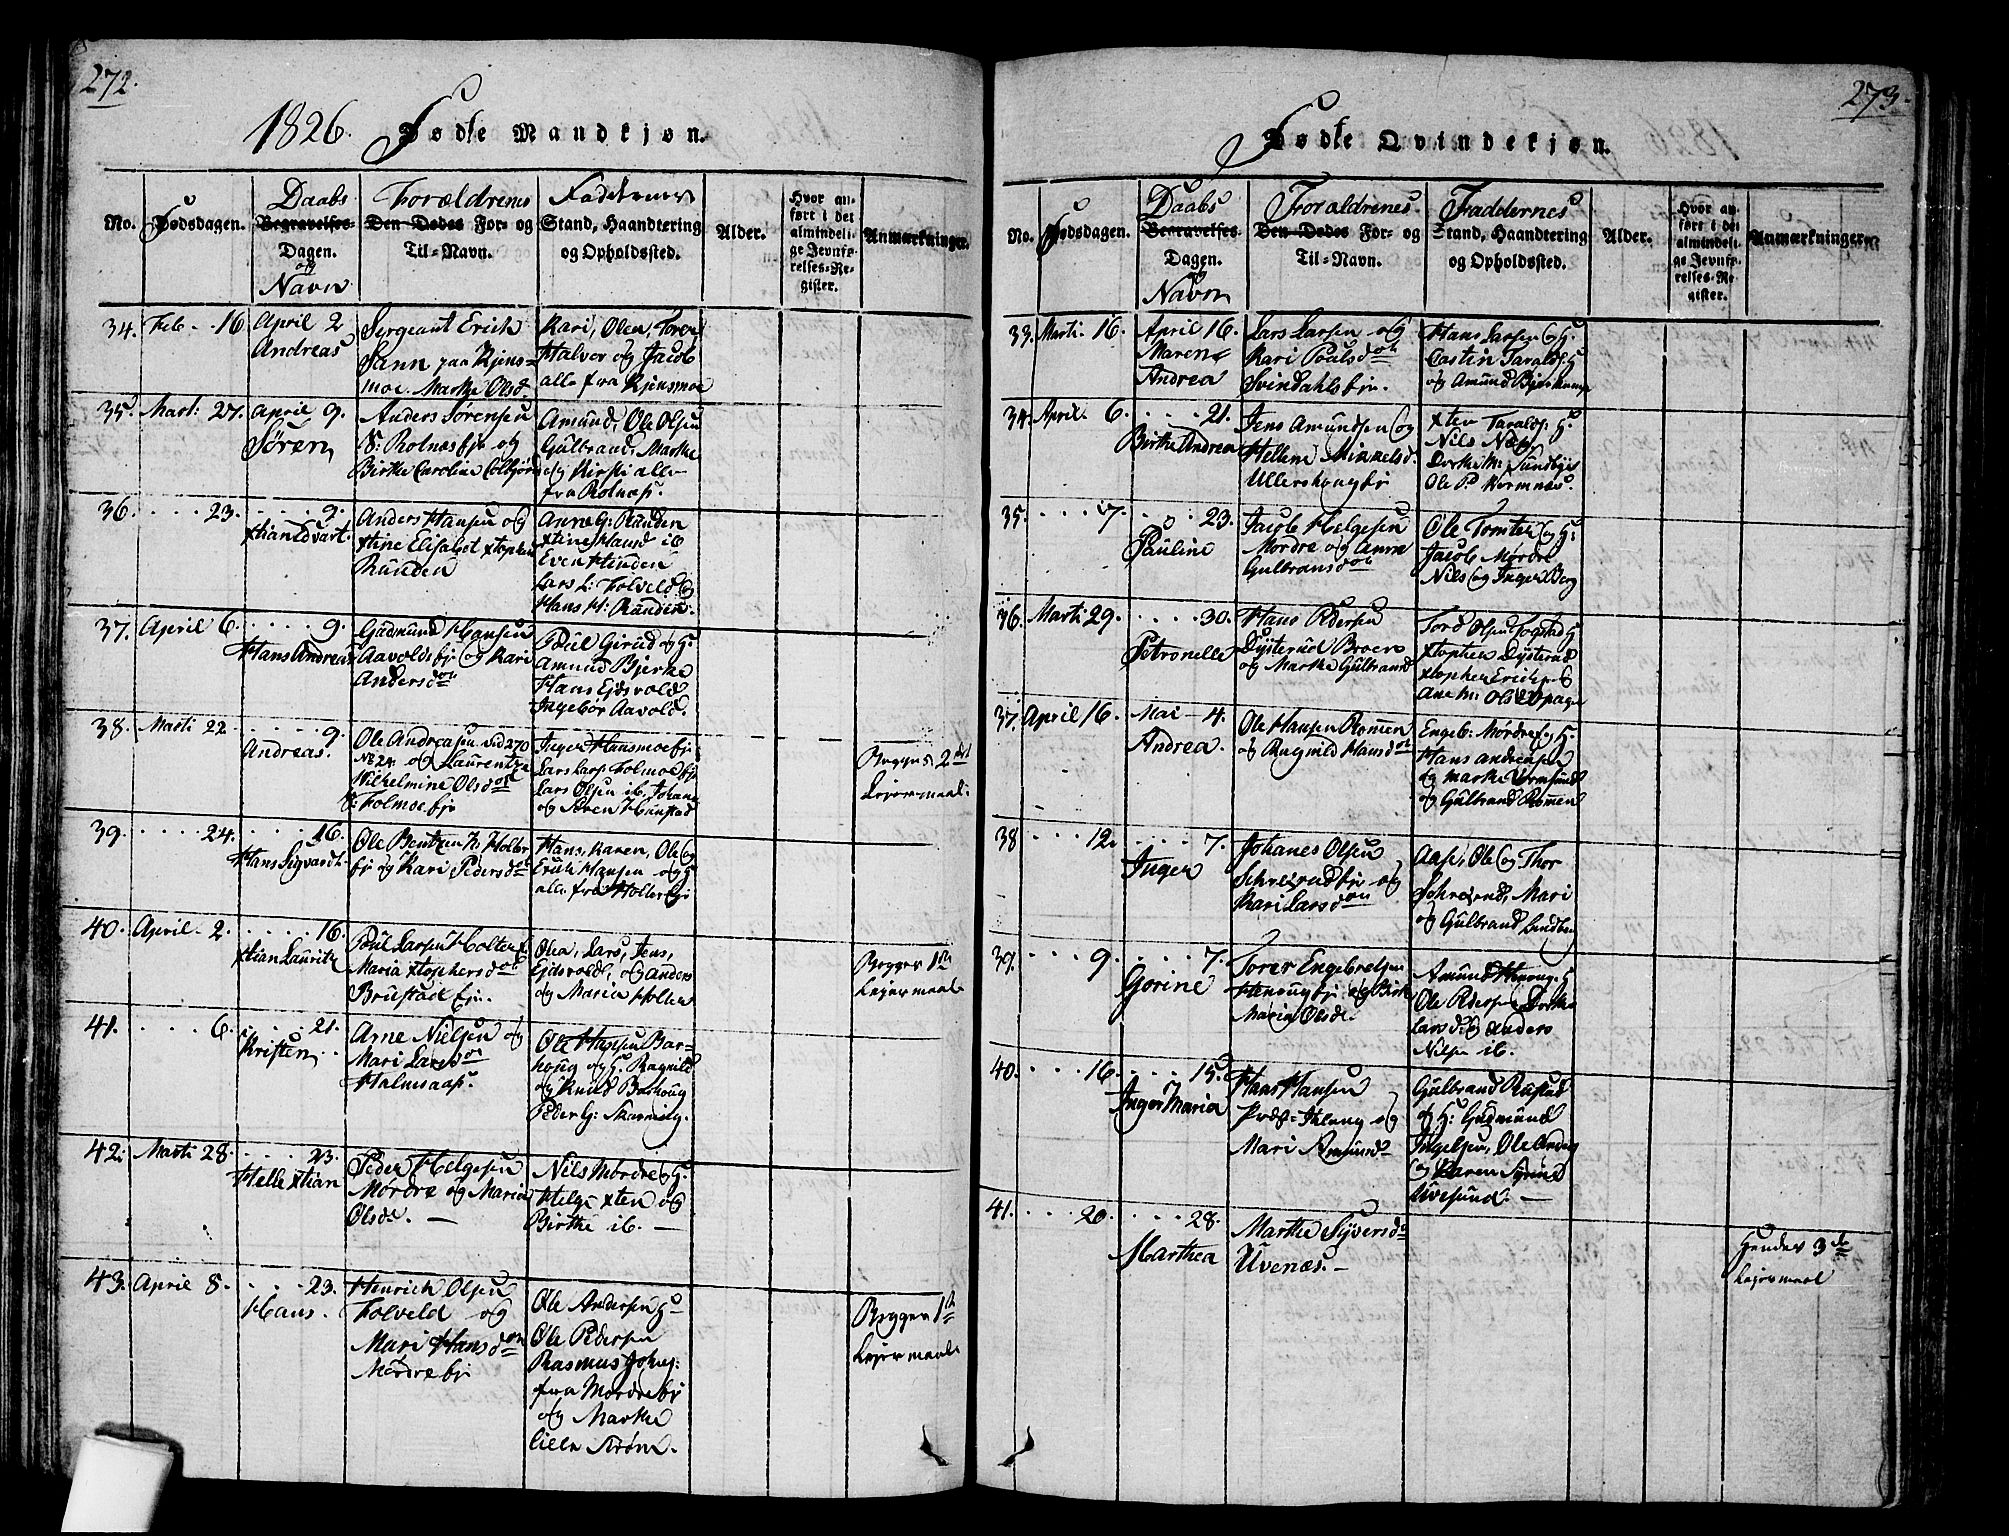 272.
1826. Fødte Mandkjøn.
No.
Fødsdagen.
Daabs
Begravelses-
Dagen.
og
Navn
Forældrenes
Den Dødes For- og
Til-Navn.
Faddernes
Stand, Haandtering
og Opholdssted.
Alder.
Hvor an-
ført i det
almindeli-
ge Jevnfø-
relses-Re-
gister.
Anmærkninger.
34. Feb. 16
April 2
Andreas
Sergeant Erich
Sann paa Kjens-
moe. Marthe Olsd.
Kari, Olea, Torer
Halvor og Jacob
alle fra Kjensmoe
35. Marti 27.
April 9.
Søren
Anders Sørensen
N: Rolnæs ejr og
Birthe Caroline Colbjörn
Amund, Ole Olsen
Gulbrand, Marthe
og Kirsti alle
fra Rolnæs.
36. . . . . 23.
. . . . 9.
Xtian Edvart.
Anders Hansen og
Xtine Elisabet Xtophers
Runden
Anne G: Runden
Xtine Haud ib
Even Hinden
Lars L: Tolveld og
Hans H: Runden.
37. April 6.
. . . . 9.
Hans Andreas
Gudmund Hansen
Aavoldsejr og Kari
Andersdott
Poul Girud og H:
Amund Bjerke
Hans Ejdsvold
Ingebor Aavold.
38. Marti 22
. . . . 9.
Andreas.
Ole Andreasen vid 270
No 24 og Laurentza
Wilhelmine Olsdott
N: Folmoe ejr
Inger Hansmoe ejr
Lars Lars: Folmoe ejr
Lars Olsen ib, Johanes
og Søren Hanstad
Begges 2det
Lejermaal.
39. . . . . 24.
. . . 16.
Hans Sigvardt.
Ole Bentzen N: Holter
ejr og Kari Pedersdtt
Hans, Karen, Ole og
Erich Hansen og H:
alle fra Holter ejr
40. April 2.
. . . . 16.
Xtian Lauritz
Poul Larsen Holter &
Maria Xtophersdott
Brustad ejr.
Olea, Lars, Jens,
Ejdsvold, og Anders
og Maria Holter
Begges 1ste
Lejermaal
41. . . . 6.
. . . 21.
Kristen
Arne Nielsen og
Mari Larsdott
Halmsaas.
Ole Hagesen Bar-
houg og H: Ragnild
og Knud Barhoug
Peder G: Skarmelg.
42. Marti 28.
. . . . 23.
Helle Xtian
Peder Helgesen
Mørdre og Maria
Olsdr. —
Nils Mørdre og H:
Helge Xten og
Birthe ib. —
43. April 8.
. . . . 23.
Hans.
Henrich Olsen
Tolveld og
Mari Hansdatt
Mørdre ejr
Ole Andersen H:
Ole Pedersen
Rasmus Johns:
fra Mørdre ejr
og Marthe
Lille Strøm.
Begges 1ste
Lejermaal
273.
Fødte Qvindekjøn.
No.
Fødsdagen.
Daabs
Begravelses-
Dagen.
og
Navn
Forældrenes
Den Dødes For- og
Til-Navn.
Faddernes
Stand, Haandtering
og Opholdssted.
Alder.
Hvor an-
ført i det
almindeli-
ge Jevnfø-
relses-Re-
gister.
Anmærkninger.
33. Marti 16.
April 16.
Maren
Andrea
Lars Larsen og
Kari Poulsdott
Svindahls ejr.
Hans Larsen og H:
Castin Taralds: H
og Amund Bjerkenæs
34. April 6.
. . . . 21.
Birthe Andrea
Jens Amundsen og
Hellene Mikkelsd.
Ullershoug ejr
Xten Taralds: H:
Nils Næs
Dorthe M: Sundbye
Ole P: Wormnæs.
35. . . . 7.
. . . 23.
Pauline
Jacob Helgesen
Mordre og Anne
Gulbransdott
Ole Tomter og H:
Jacob Mørdre
Nils og Inger Berg
36. Marti 29.
. . . . 30.
Petronelle
Hans Pedersen
Dysterud Broen
og Marthe Gulbrand
Tord Olsen Fogstad H:
Xtopher Dysterud
Xtopher Erichs: og
Ane M: Olsd Opager
37. April 16.
Mai 4.
Andrea.
Ole Hansen Romen
og Ragnild Hansdott
Engeb: Mørdre og H:
Hans Andreasen
og Marthe Wormsund
og Gulbrand Romen
38 . . . 12.
. . . . 7.
Inger
Johanes Olsen
Schreirud ejr og
Kari Larsdott
Aase, Ole og Thor
Schreirud, Mari
og Gulbrand Lindber
39. . . . 9.
. . . . 7.
Gorine
Torer Engebretsen
Henoug ejr og Birthe
Maria Olsdr.
Amund Henoug. H
Ole Peders: Dorthe
Larsd og Anders
Nilsen ib.
40. . . . 16.
. . . . 15.
Inger Maria
Hans Hansen
Præst-Ihlang og
Mari Amunds
Gulbrand Rustad
og H: Gudmund
Ingelsen, Ole Anders
og Karen Syrine
Uvesund. —
41. . . . 20.
. . . . 28.
Marthea
Marthe Syversdtt
Uvenæs. —
Hendes 3de
Lejermaal